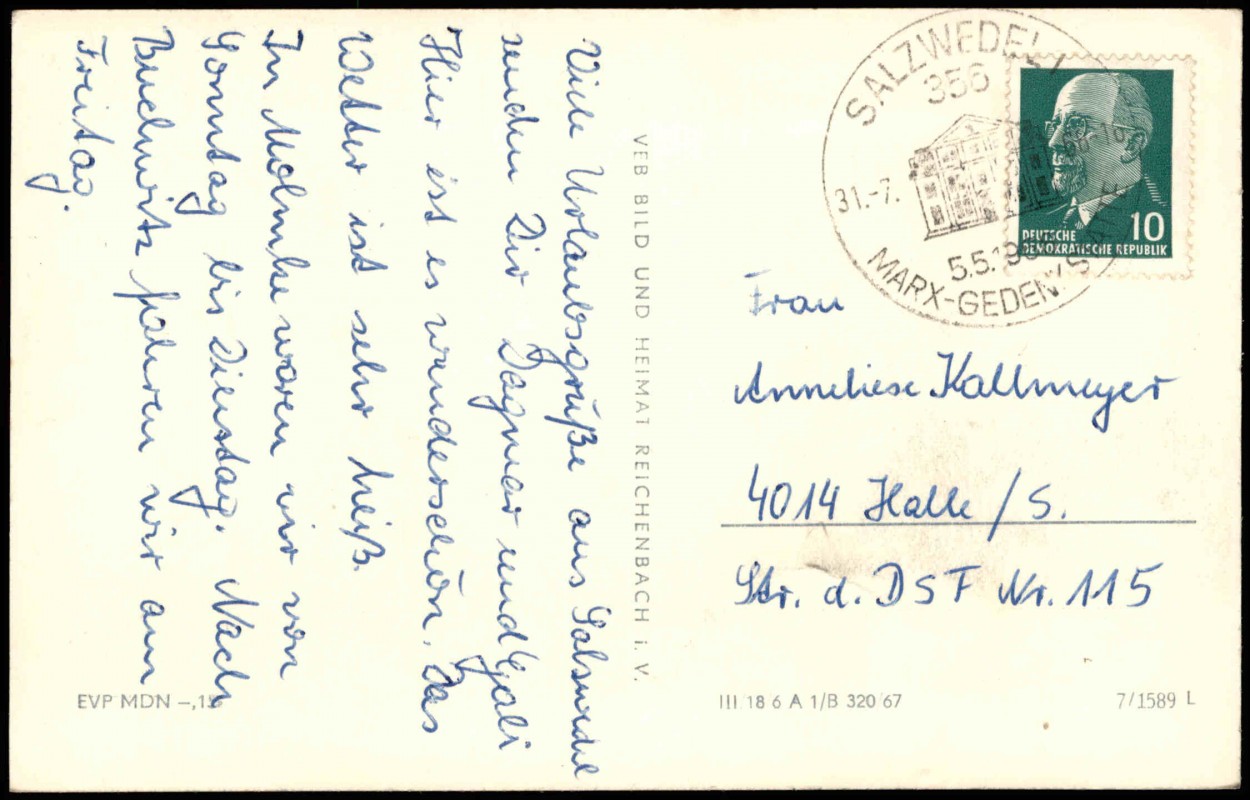 Viele Urlaubsgrüße aus Salzwedel
senden Dir Dagmar und
Hier ist es wunderschön. Das
Wetter ist sehr heiß.
In Molmke waren wir von
Sonntag bis Dienstag. Nach
fahren wir am
Freitag.
VEB BILD UND HEIMAT REICHENBACH i. V.
EVP MDN –,15
SALZWEDEL 1
356
31.-7.
5.5.
MARX-GEDENKS
10
DEUTSCHE
DEMOKRATISCHE REPUBLIK
Frau
Anneliese Kallmeyer
4014 Halle / S.
Str. d. DSF Nr. 115
III 18 6 A 1/B 320 67
7/1589 L